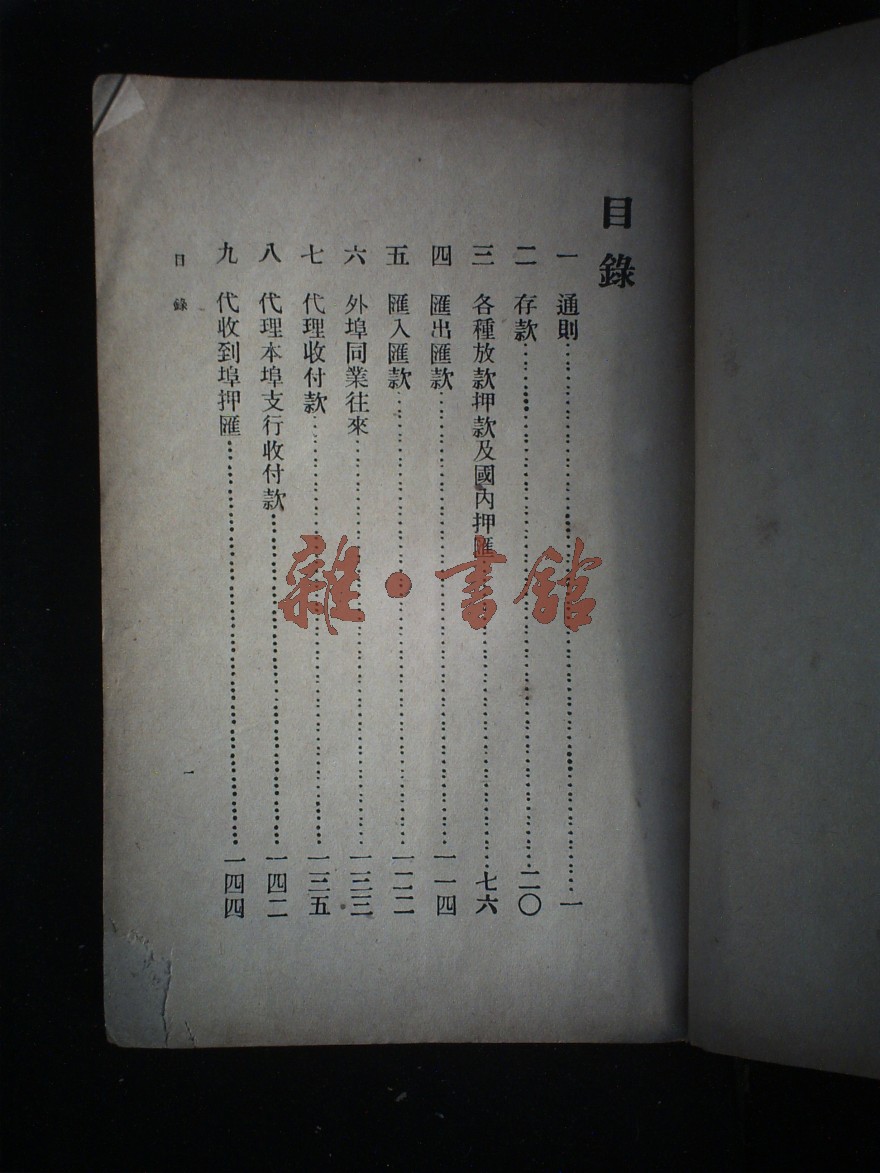 目錄
一 通則……一
二 存款……二〇
三 各種放款押款及國內押匯……七六
四 匯出匯款……一一四
五 匯入匯款……一二二
六 外埠同業往來……一三三
七 代理收付款……一三五
八 代理本埠支行收付款……一四二
九 代收到埠押匯……一四四
目錄
一
雜·書館